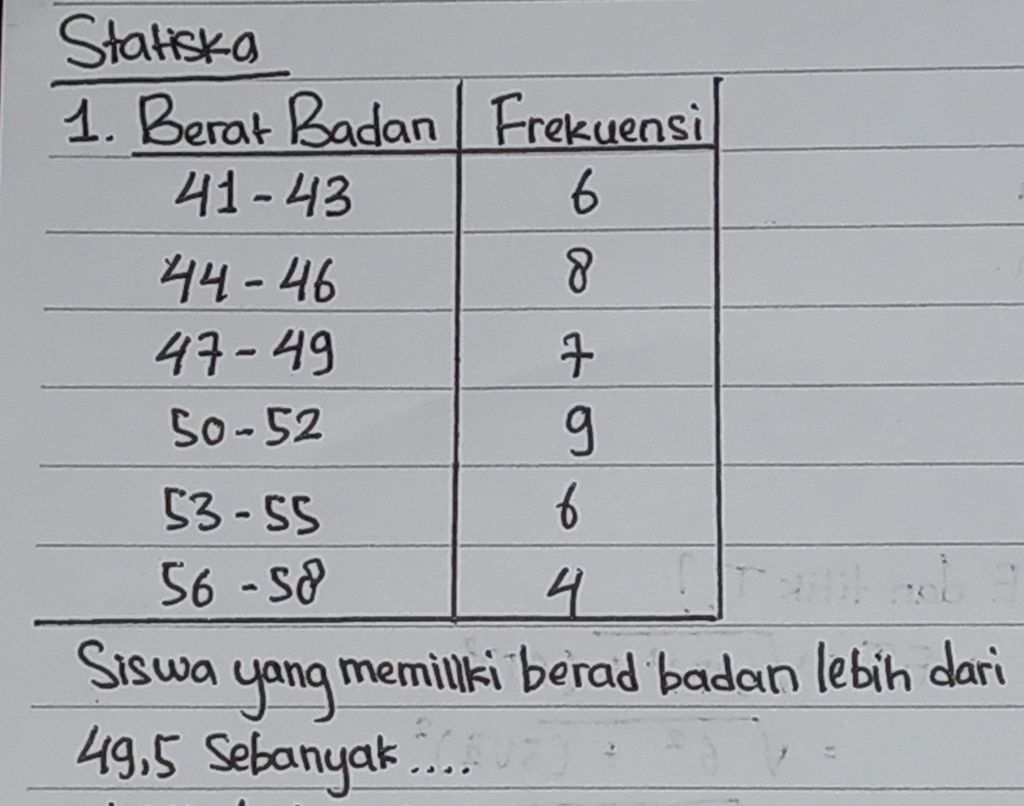 Statiska
1. Berat Badan Frekuensi
41 - 43 6
44 - 46 8
47 - 49 7
50 - 52 9
53 - 55 6
56 - 58 4
Siswa yang memillki berad badan lebih dari
49,5 Sebanyak ....